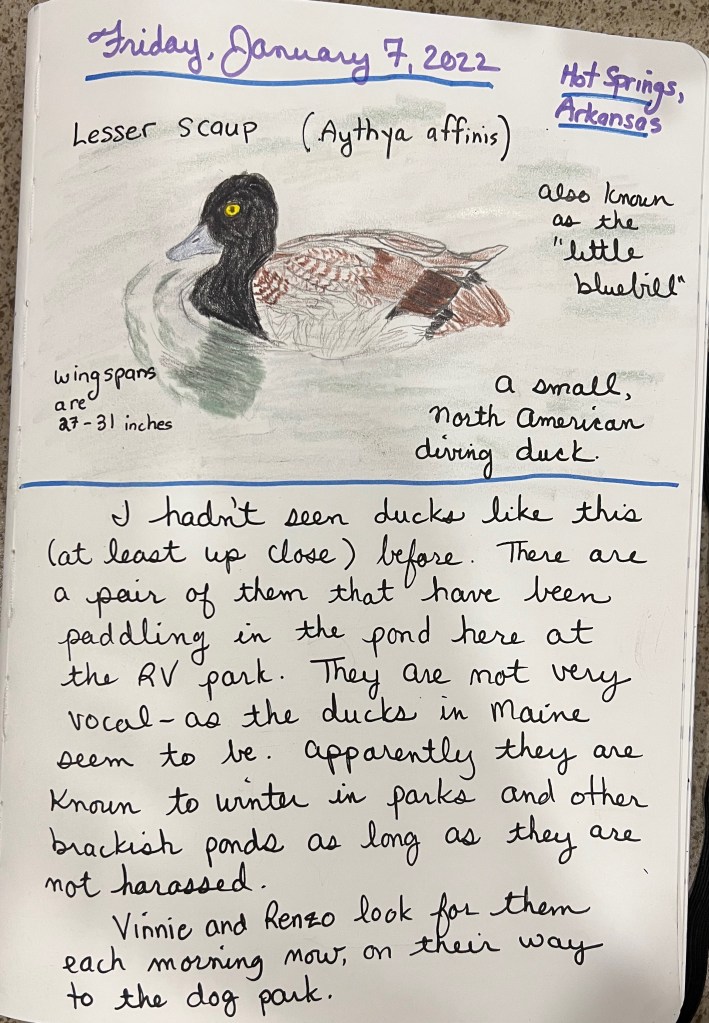 Friday, January 7, 2022
Hot Springs,
Arkansas
Lesser Scaup (Aythya affinis)
also known
as the
"little
bluebill"
wingspans
are
27-31 inches
a small,
North American
diving duck.
I hadn't seen ducks like this
(at least up close) before. There are
a pair of them that have been
paddling in the pond here at
the RV park. They are not very
vocal - as the ducks in Maine
seem to be. Apparently they are
known to winter in parks and other
brackish ponds as long as they are
not harassed.
Vinnie and Renzo look for them
each morning now, on their way
to the dog park.